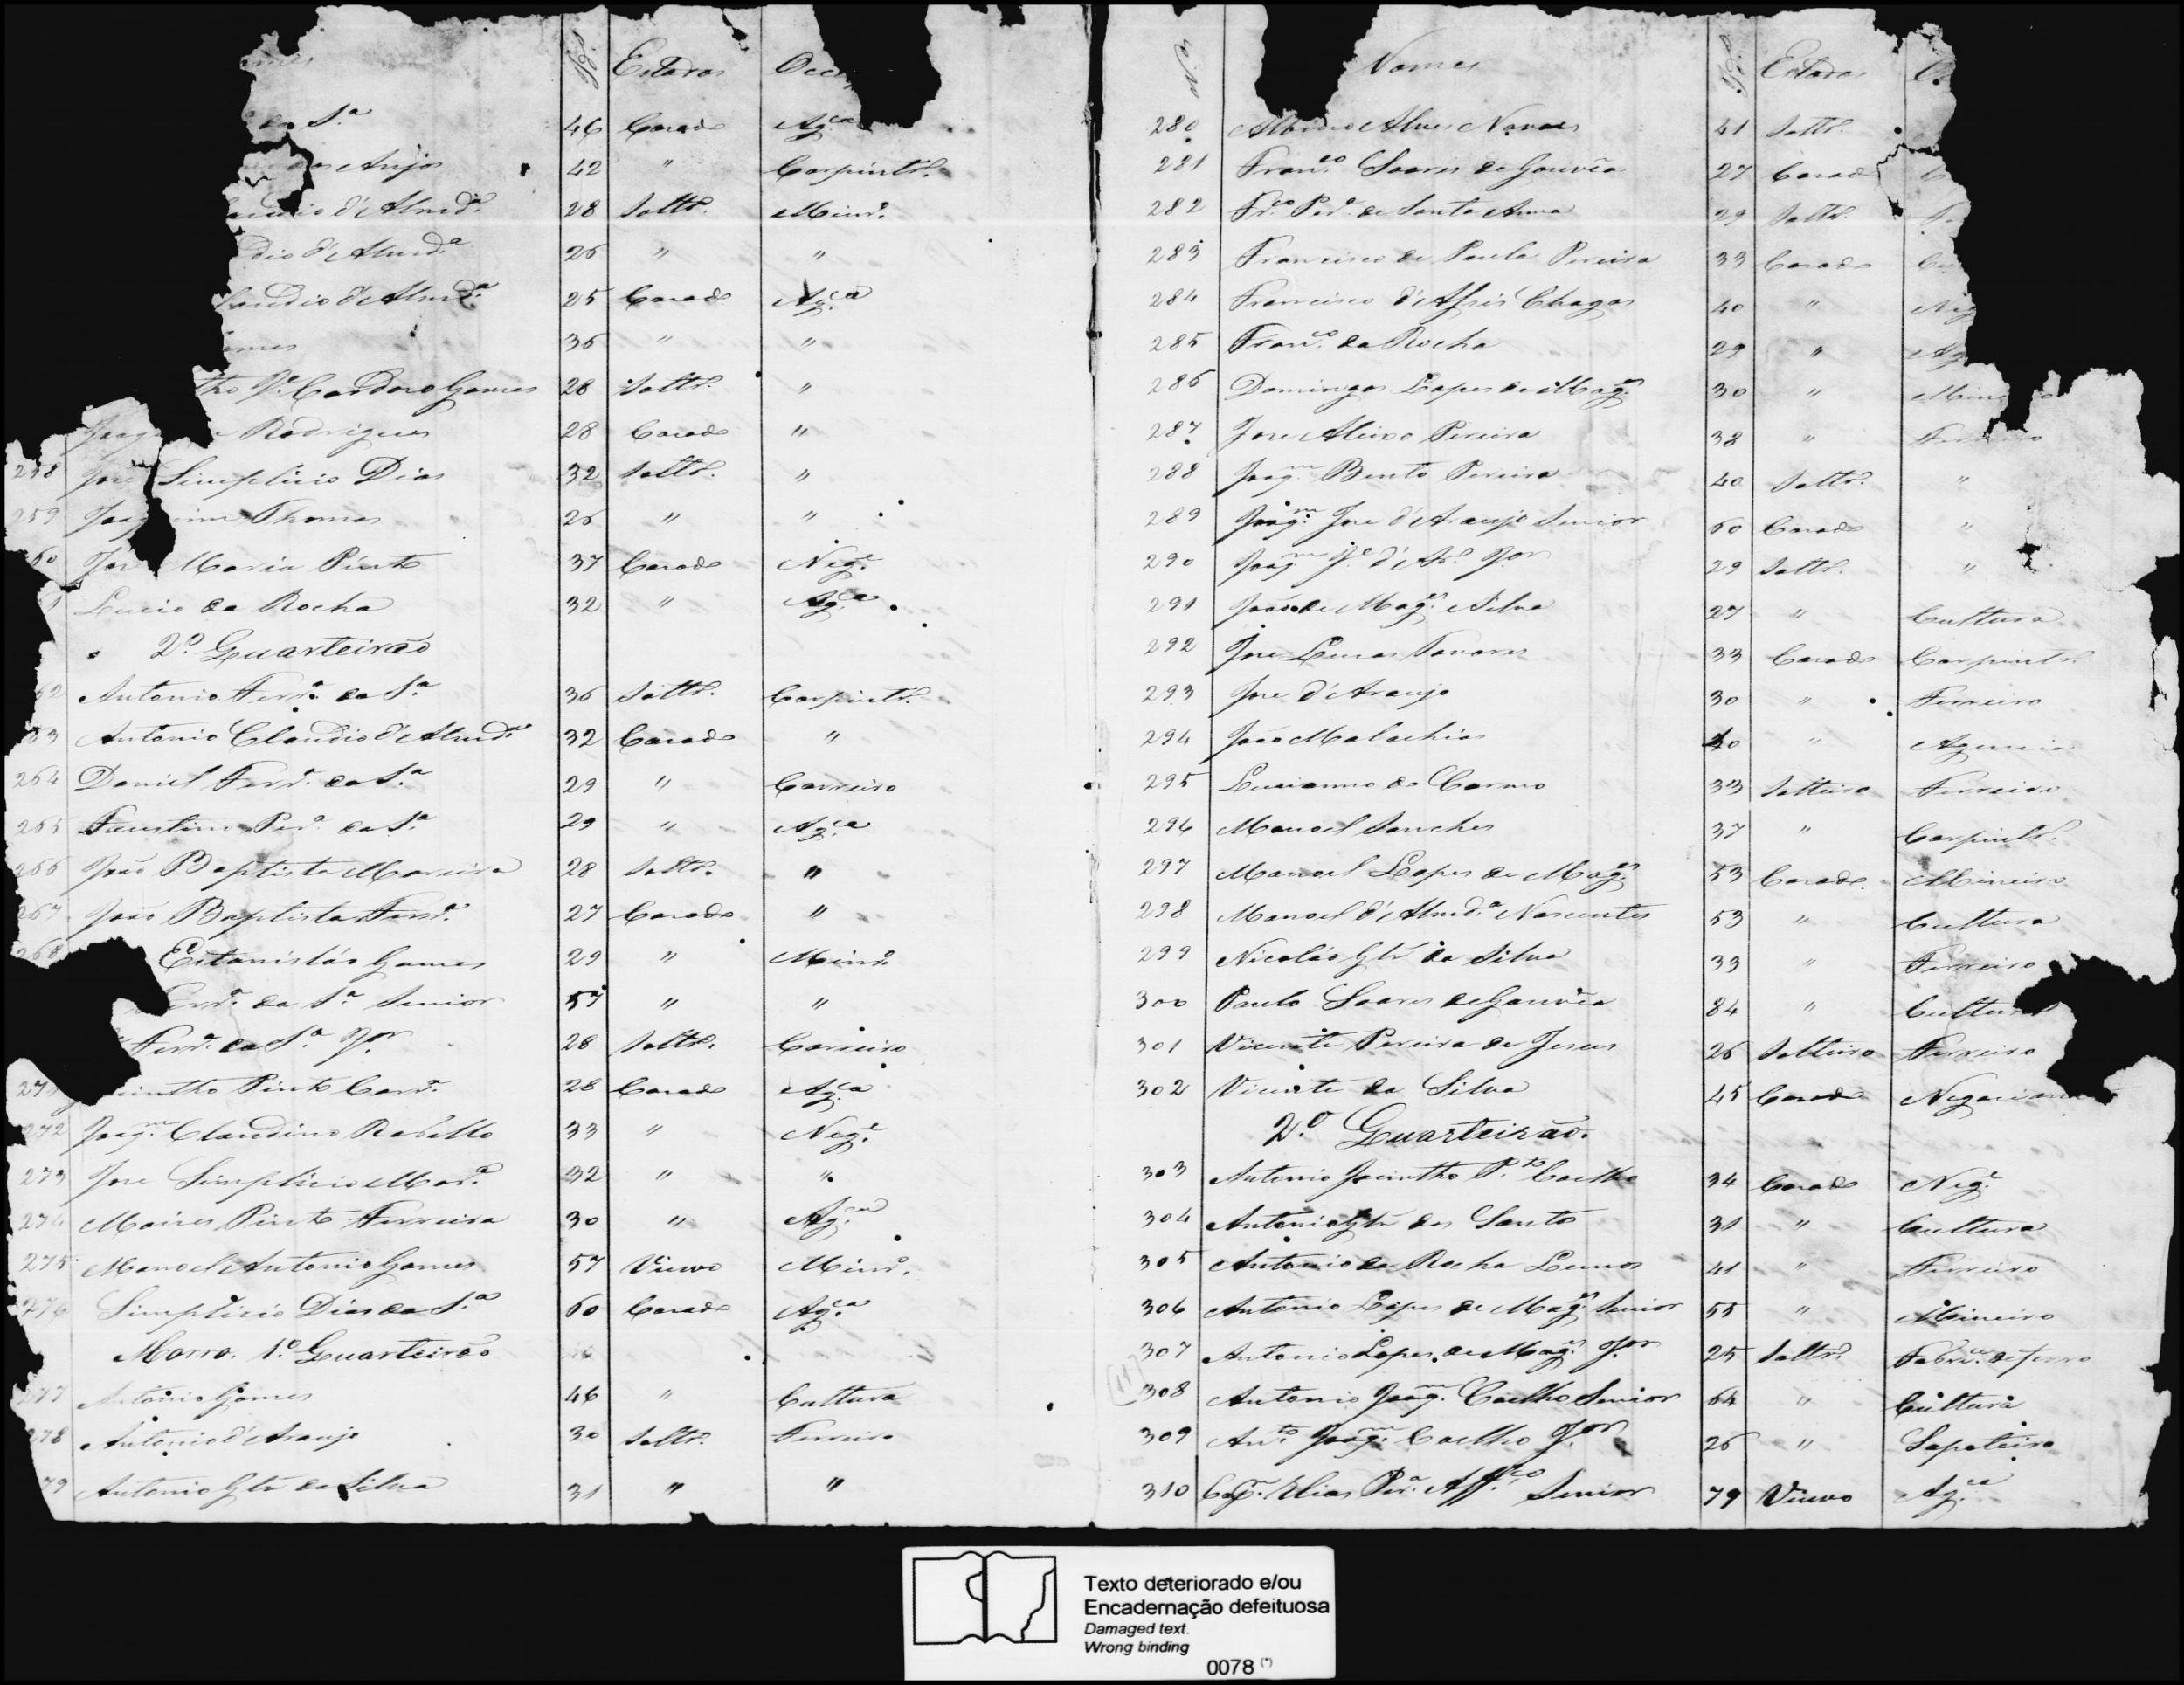 Id.es Estados
da S.ª 46 Casado Ag.ca
dos Anjos 42 " Carpintr.º
Claudio d'Almd.ª 28 Soltr.º Minr.º
dio d'Almd.ª 26 " "
Claudio d'Almd.ª 25 Casado Ag.ca
Gomes 36 " "
Cardoso Gomes 28 Soltr.º "
Rodrigues 28 Casado "
258 José Simplicio Dias 32 Soltr.º "
259 Thomas 26 " "
60 José Maria Pinto 37 Casado Neg.e
1 Lucio da Rocha 32 " Ag.ca
2.º Quarteirão
62 Antonio Ferr.ª da S.ª 36 Soltr.º Carpintr.º
63 Antonio Claudio d'Almd.ª 32 Casado "
264 Daniel Ferr.ª da S.ª 29 " Carreiro
265 Faustino Per.ª da S.ª 29 " Ag.ca
266 João Baptista Moreira 28 Soltr.º "
267 João Baptista Ferr.ª 27 Casado "
268 Estanisláo Gomes 29 " Minr.º
Ferr.ª da S.ª Senior 57 " "
Ferr.ª da S.ª J.or 28 Soltr.º Carreiro
271 Jacintho Pinto Card.º 28 Casado Ag.ca
272 Joaq.m Claudino Rabello 33 " Neg.e
273 José Simplicio Mor.ª 32 " "
274 Moises Pinto Ferreira 30 " Ag.ca
275 Manoel Antonio Gomes 57 Viuvo Minr.º
276 Simplicio Dias da S.ª 60 Casado Ag.ca
Morro. 1.º Quarteirão
277 Antonio Gomes 46 " Cultura
278 Antonio d'Araujo 30 Soltr.º Ferreiro
79 Antonio Glz da Silva 31 " "
N.os Nomes Id.es Estados
280 Alves Novaes 41 Soltr.º
281 Fran.co Soares de Gouvêa 27 Casado
282 Fr.co Per.ª de Santa Anna 29 Soltr.º
283 Francisco de Paula Pereira 33 Casado
284 Francisco d'Assis Chagas 40 " Neg
285 Fran.co da Rocha 29 " Ag
286 Domingos Lopes de Mag.es 30 " Min
287 José Aleixo Pereira 38 "
288 Joaq.m Bento Pereira 40 Soltr.º "
289 Joaq.m José d'Araujo Senior 60 Casado "
290 Joaq.m J.e d'Ar.º J.or 29 Soltr.º "
291 João de Mag.es Silva 27 " Cultura
292 José Lucas Tavares 33 Casado Carpintr.º
293 José d'Araujo 30 " Ferreiro
294 João Malachias 40 " Agencia
295 Lucianno do Carmo 33 Solteiro Ferreiro
296 Manoel Sanches 37 " Carpintr.º
297 Manoel Lopes de Mag.es 53 Casado Mineiro
298 Manoel d'Almd.ª Nascentes 53 " Cultura
299 Nicoláo Glz da Silva 33 " Ferreiro
300 Paulo Soares de Gouvêa 84 " Cultura
301 Vicente Pereira de Jesus 26 Solteiro Ferreiro
302 Vicente da Silva 45 Casado Negocian
2.º Quarteirão.
303 Antonio Jacintho P.to Coelho 34 Casado Neg.e
304 Antonio Glz dos Santos 31 " Cultura
305 Antonio da Rocha Lemos 41 " Ferreiro
306 Antonio Lopes de Mag.es Senior 55 " Mineiro
307 Antonio Lopes de Mag.es J.or 25 Soltr.º Fabr.ce de ferro
308 Antonio Joaq.m Coelho Senior 64 " Cultura
309 An.to Joaq.m Coelho J.or 26 " Sapateiro
310 Cap.m Elias Per.ª Senior 79 Viuvo Ag.ca
Texto deteriorado e/ou
Encadernação defeituosa
Damaged text.
Wrong binding
0078 (*)